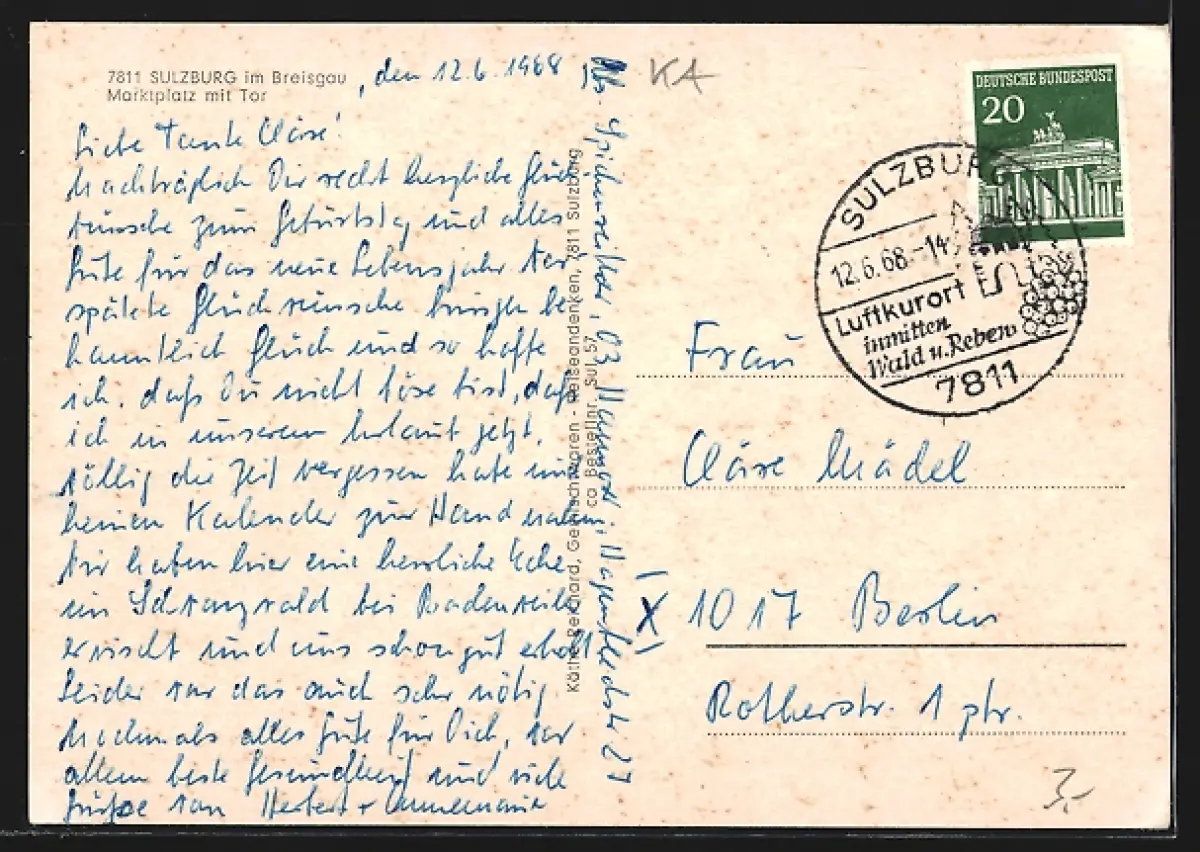 7811 SULZBURG im Breisgau
Marktplatz mit Tor
, den 12.6.1968
Liebe Tante Cläre!
Nachträglich Dir recht herzliche Glück
wünsche zum Geburtstag und alles
Gute für das neue Lebensjahr. Ver
spätete Glückwünsche bringen be
kanntlich Glück und so hoffe
ich, daß Du nicht böse bist, daß
ich in unserem Urlaub jetzt,
völlig die Zeit vergessen habe und
keinen Kalender zur Hand nahm.
Wir haben hier eine herrliche Ecke
im Schwarzwald bei Badenweiler
erwischt und uns schon gut erholt
Leider war das auch sehr nötig
Nochmals alles Gute für Dich, vor
allem beste Gesundheit und viele
Grüße von Herbert + Annemarie
Abs. 03 Hannover, 27
Käthe Reichard, Gemischtwaren - Reiseandenken, 7811 Sulzburg
co Bestellnr. Sul 57
KA
DEUTSCHE BUNDESPOST
20
SULZBURG
12.6.68.-14
Luftkurort
inmitten
Wald u. Reben
7811
Frau
Cläre Mädel
X 1017 Berlin
Rotherstr. 1 ptr.
3,-